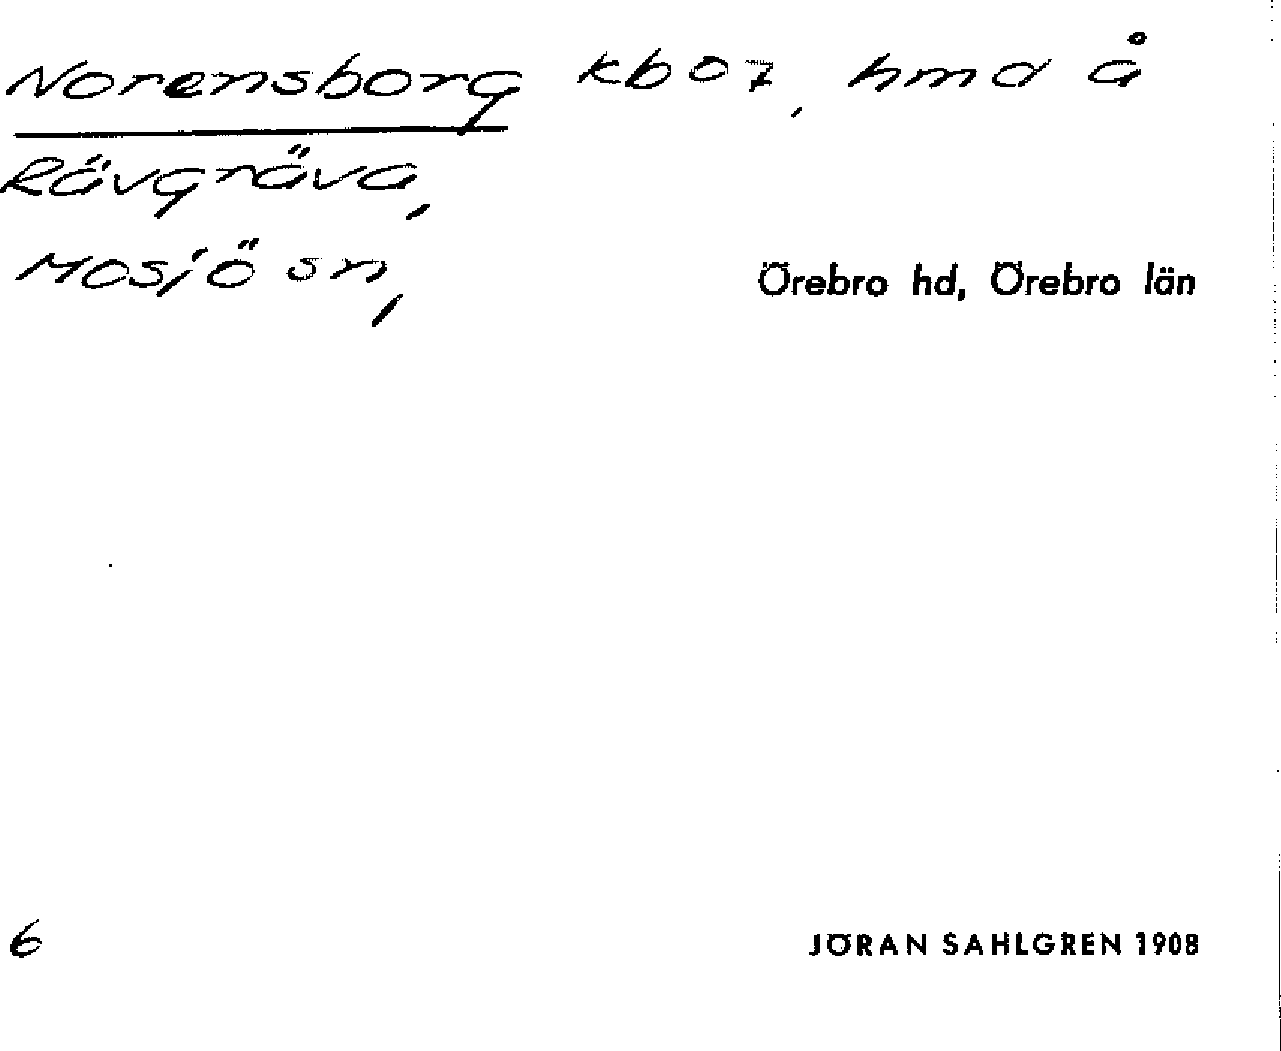 Norensborg kb 07, hmd å
Rävgräva,
Mosjö sn,
Örebro hd, Örebro län
6
JÖRAN SAHLGREN 1908